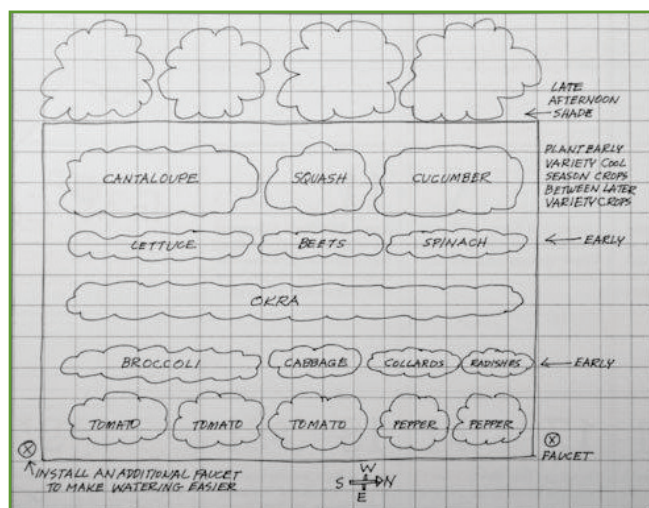 LATE
AFTERNOON
SHADE
PLANT EARLY
VARIETY COOL
SEASON CROPS
BETWEEN LATER
VARIETY CROPS
CANTALOUPE SQUASH CUCUMBER
LETTUCE BEETS SPINACH ← EARLY
OKRA
BROCCOLI CABBAGE COLLARDS RADISHES ← EARLY
TOMATO TOMATO TOMATO PEPPER PEPPER
FAUCET
INSTALL AN ADDITIONAL FAUCET
TO MAKE WATERING EASIER
W
S N
E